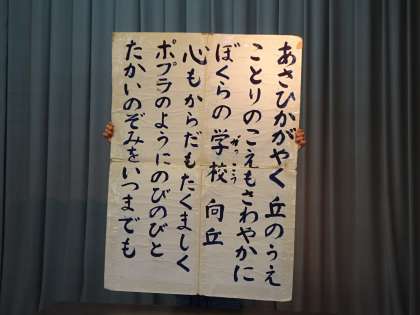 あさひかがやく丘のうえ
ことりのこえもさわやかに
ぼくらの学校向丘
がっこう
心もからだもたくましく
ポプラのようにのびのびと
たかいのぞみをいつまでも